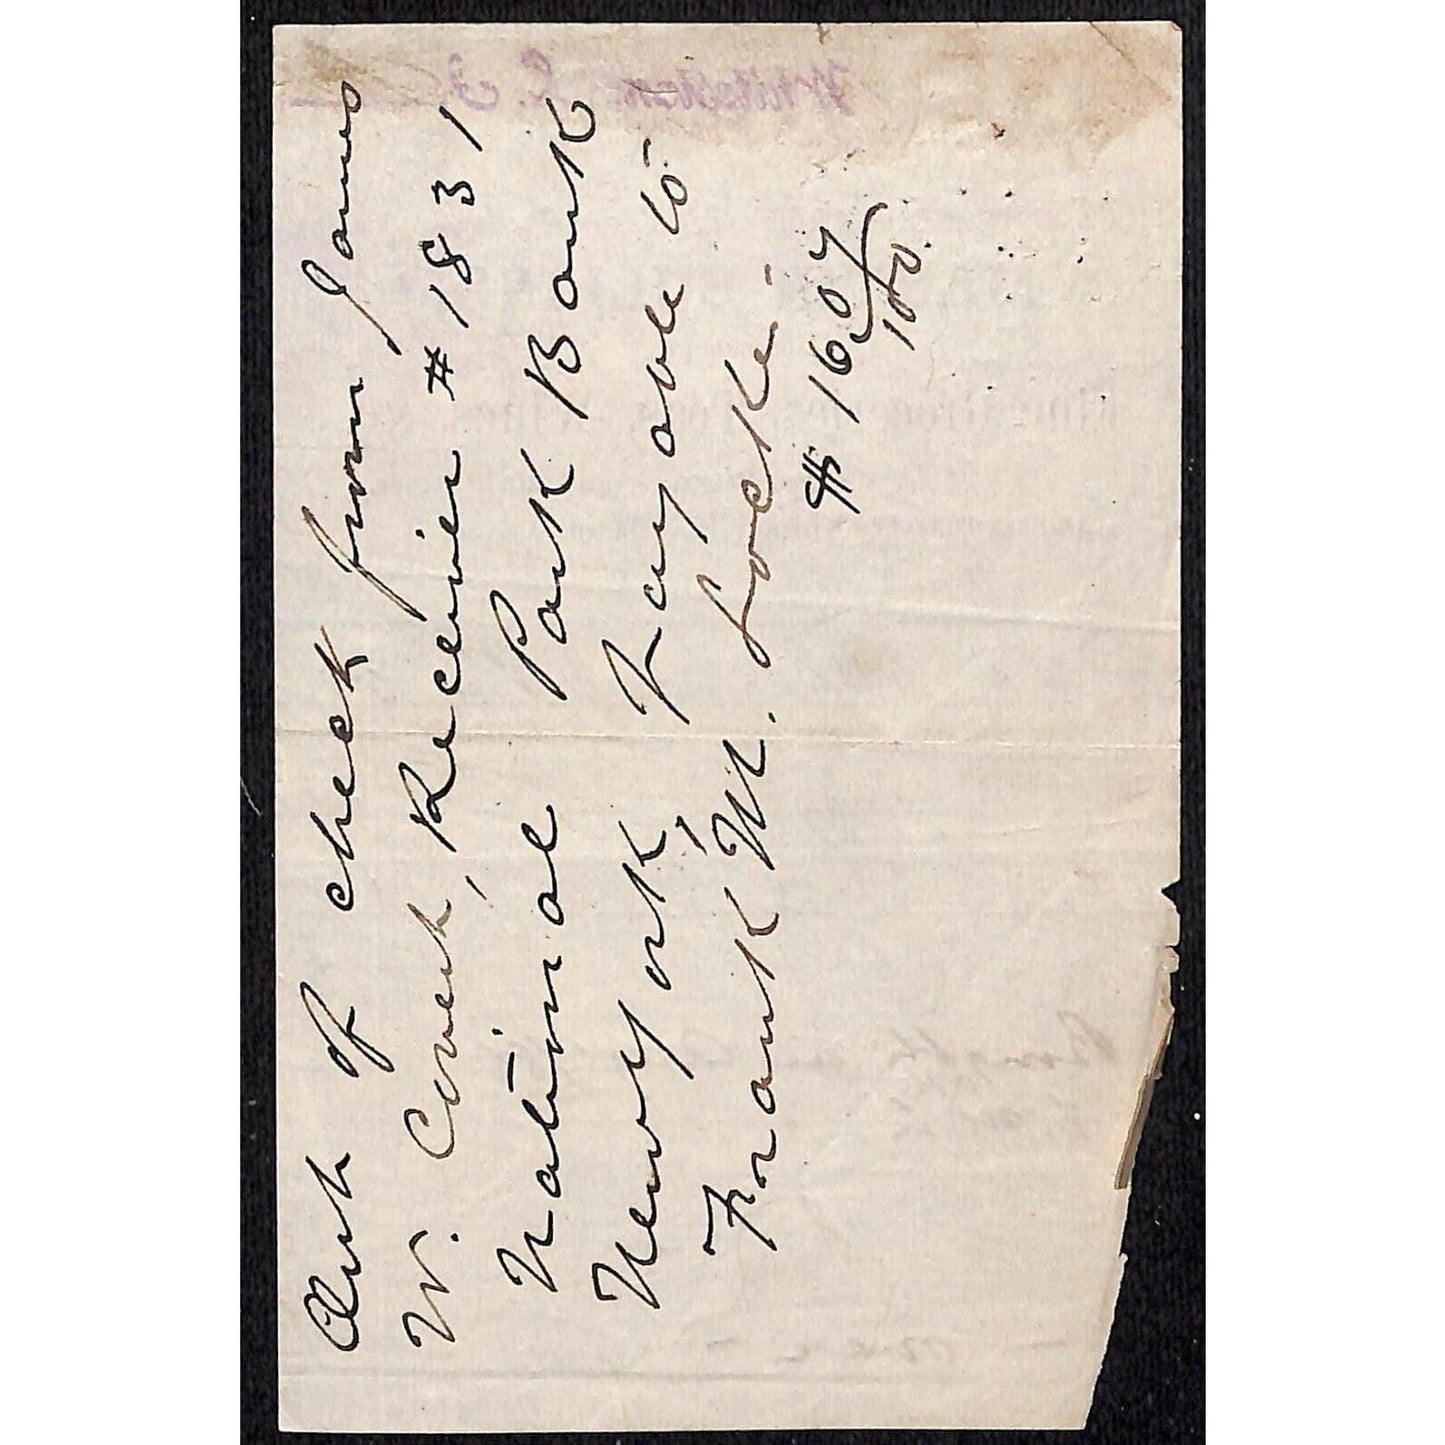 Amt of check from James
W. Covert, Receiver #1831
National Park Bank
New York, Payable to
Frank M. Locke.
$16 07/100